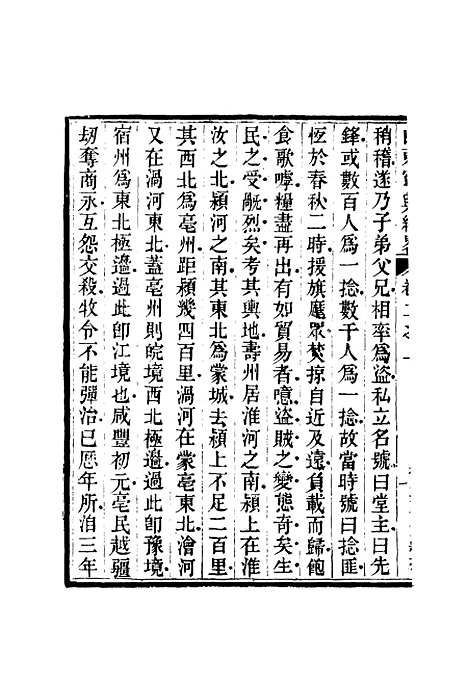 稍稽遂乃子弟父兄相率爲盜私立名號曰堂主曰先
鋒或數百人爲一捻數千人爲一捻故當時號曰捻匪
恆於春秋二時援旗麾眾焚掠自近及遠負載而歸飽
食歌嘑糧盡再出有如貿易者噫盜賊之變態奇矣生
民之受毒烈矣考其輿地壽州居淮河之南潁上在淮
汝之北潁河之南其東北爲蒙城去潁上不足二百里
其西北爲亳州距潁幾四百里渦河在蒙亳東北澮河
又在渦河東北蓋亳州則皖境西北極邊過此卽豫境
宿州爲東北極邊過此卽江境也咸豐初元亳民越疆
刼奪商永互怨交殺牧令不能彈治已歷年所洎三年